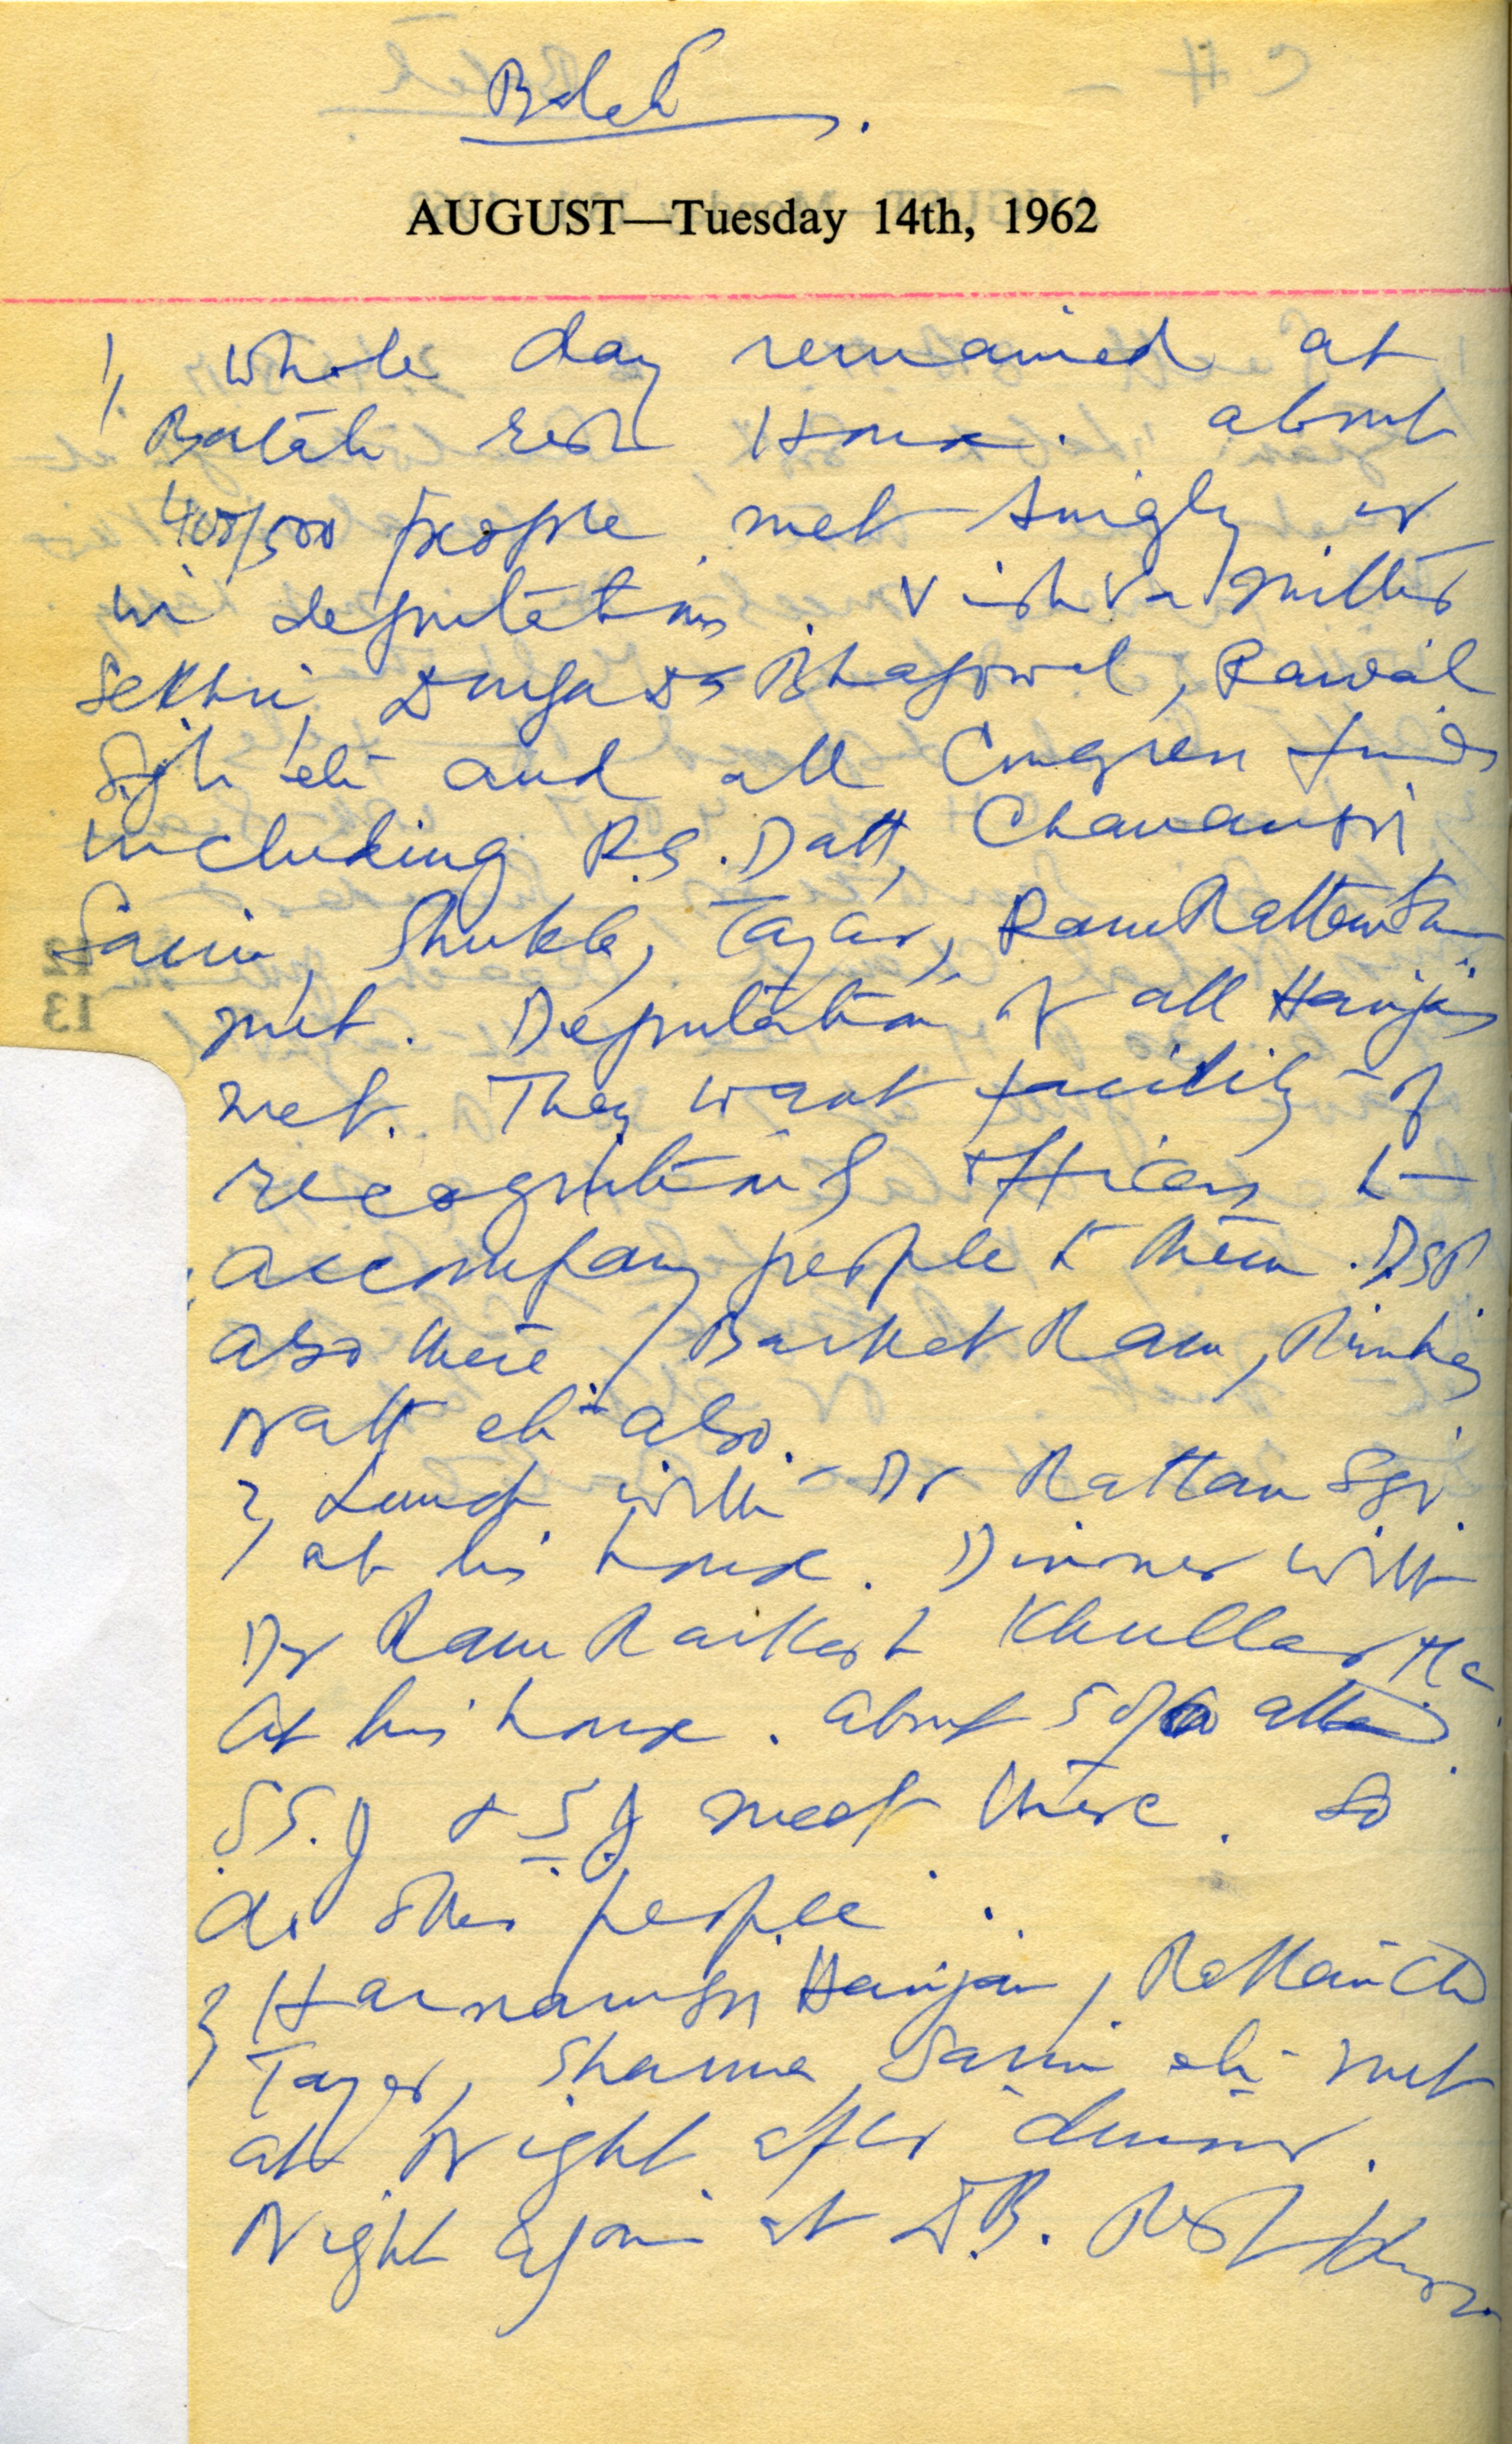 AUGUST—Tuesday 14th, 1962
1, Whole day remained at
Batala rest House. about
400/500 people met singly or
in deputations. Vishva Mitter
Sekhri, Durga Das Bhagowal, Rawail
Sgh etc and all Congress friends
including R.S. Datt,
Saini, Shukla, Tayar, Ram Rattan
met. Deputation of all Harijans
met. They want facility of
recognition & officers to
accompany people to them. DSP
also there / Barket Ram,
Natt etc also.
2, Lunch with Dr Rattan Sgh
at his house. Dinner with
Dr Ram Rakha Khullar MC
at his house. about 50/60 attend
SS.J & S J meet there. So
do other people.
3, Harnam Sgh Harijan, Rattan Ch
Tayar, Sharma, Saini etc met
at Night after dinner.
Night again at D.B. Rest House.